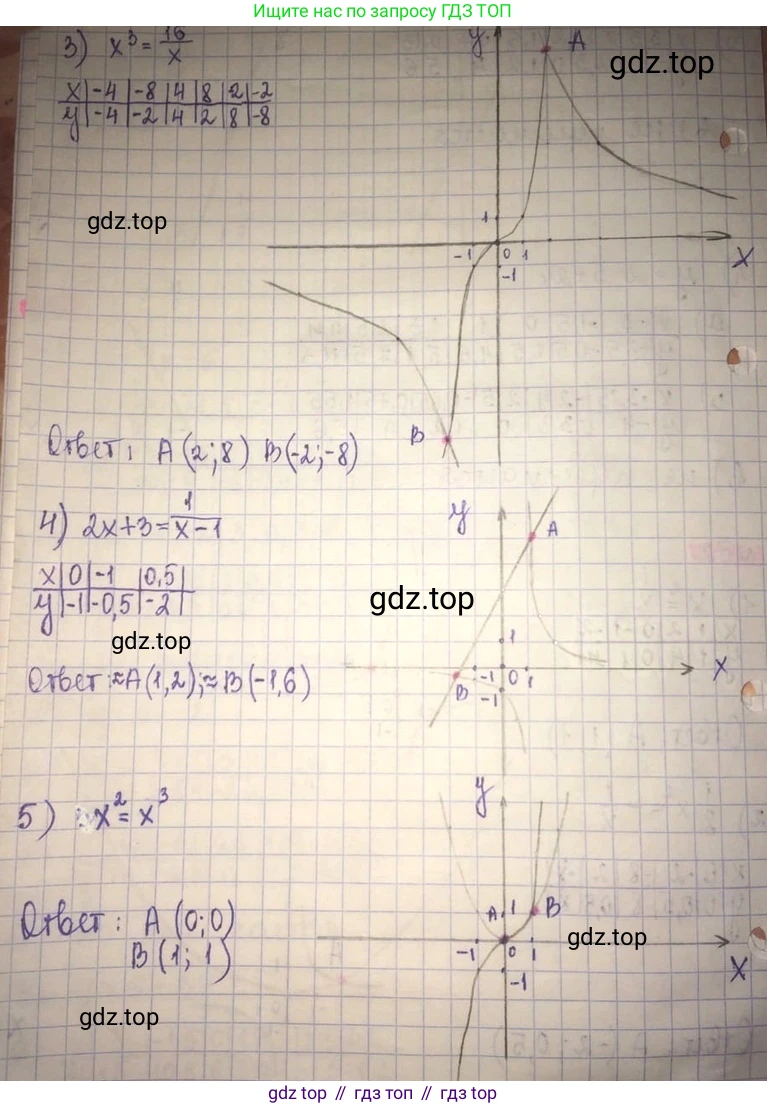 Ищите нас по запросу ГДЗ ТОП
3) x³ = 16/x
y
A
gdz.top
x | -4 | -8 | 4 | 8 | 2 | -2
y | -4 | -2 | 4 | 2 | 8 | -8
gdz.top
1
-1 0 1
x
-1
B
Ответ: A (2; 8) B (-2; -8)
4) 2x+3 = 1/x-1
y
A
x | 0 | -1 | 0,5 |
y | -1 | -0,5 | -2 |
gdz.top
gdz.top
1
-1 0 1
x
B
-1
Ответ: ≈A(1,2); ≈B(-1,6)
5) x² = x³
y
A 1 B
Ответ: A (0; 0)
B (1; 1)
gdz.top
-1 0 1
x
-1
gdz.top
gdz top // гдз топ // gdz top